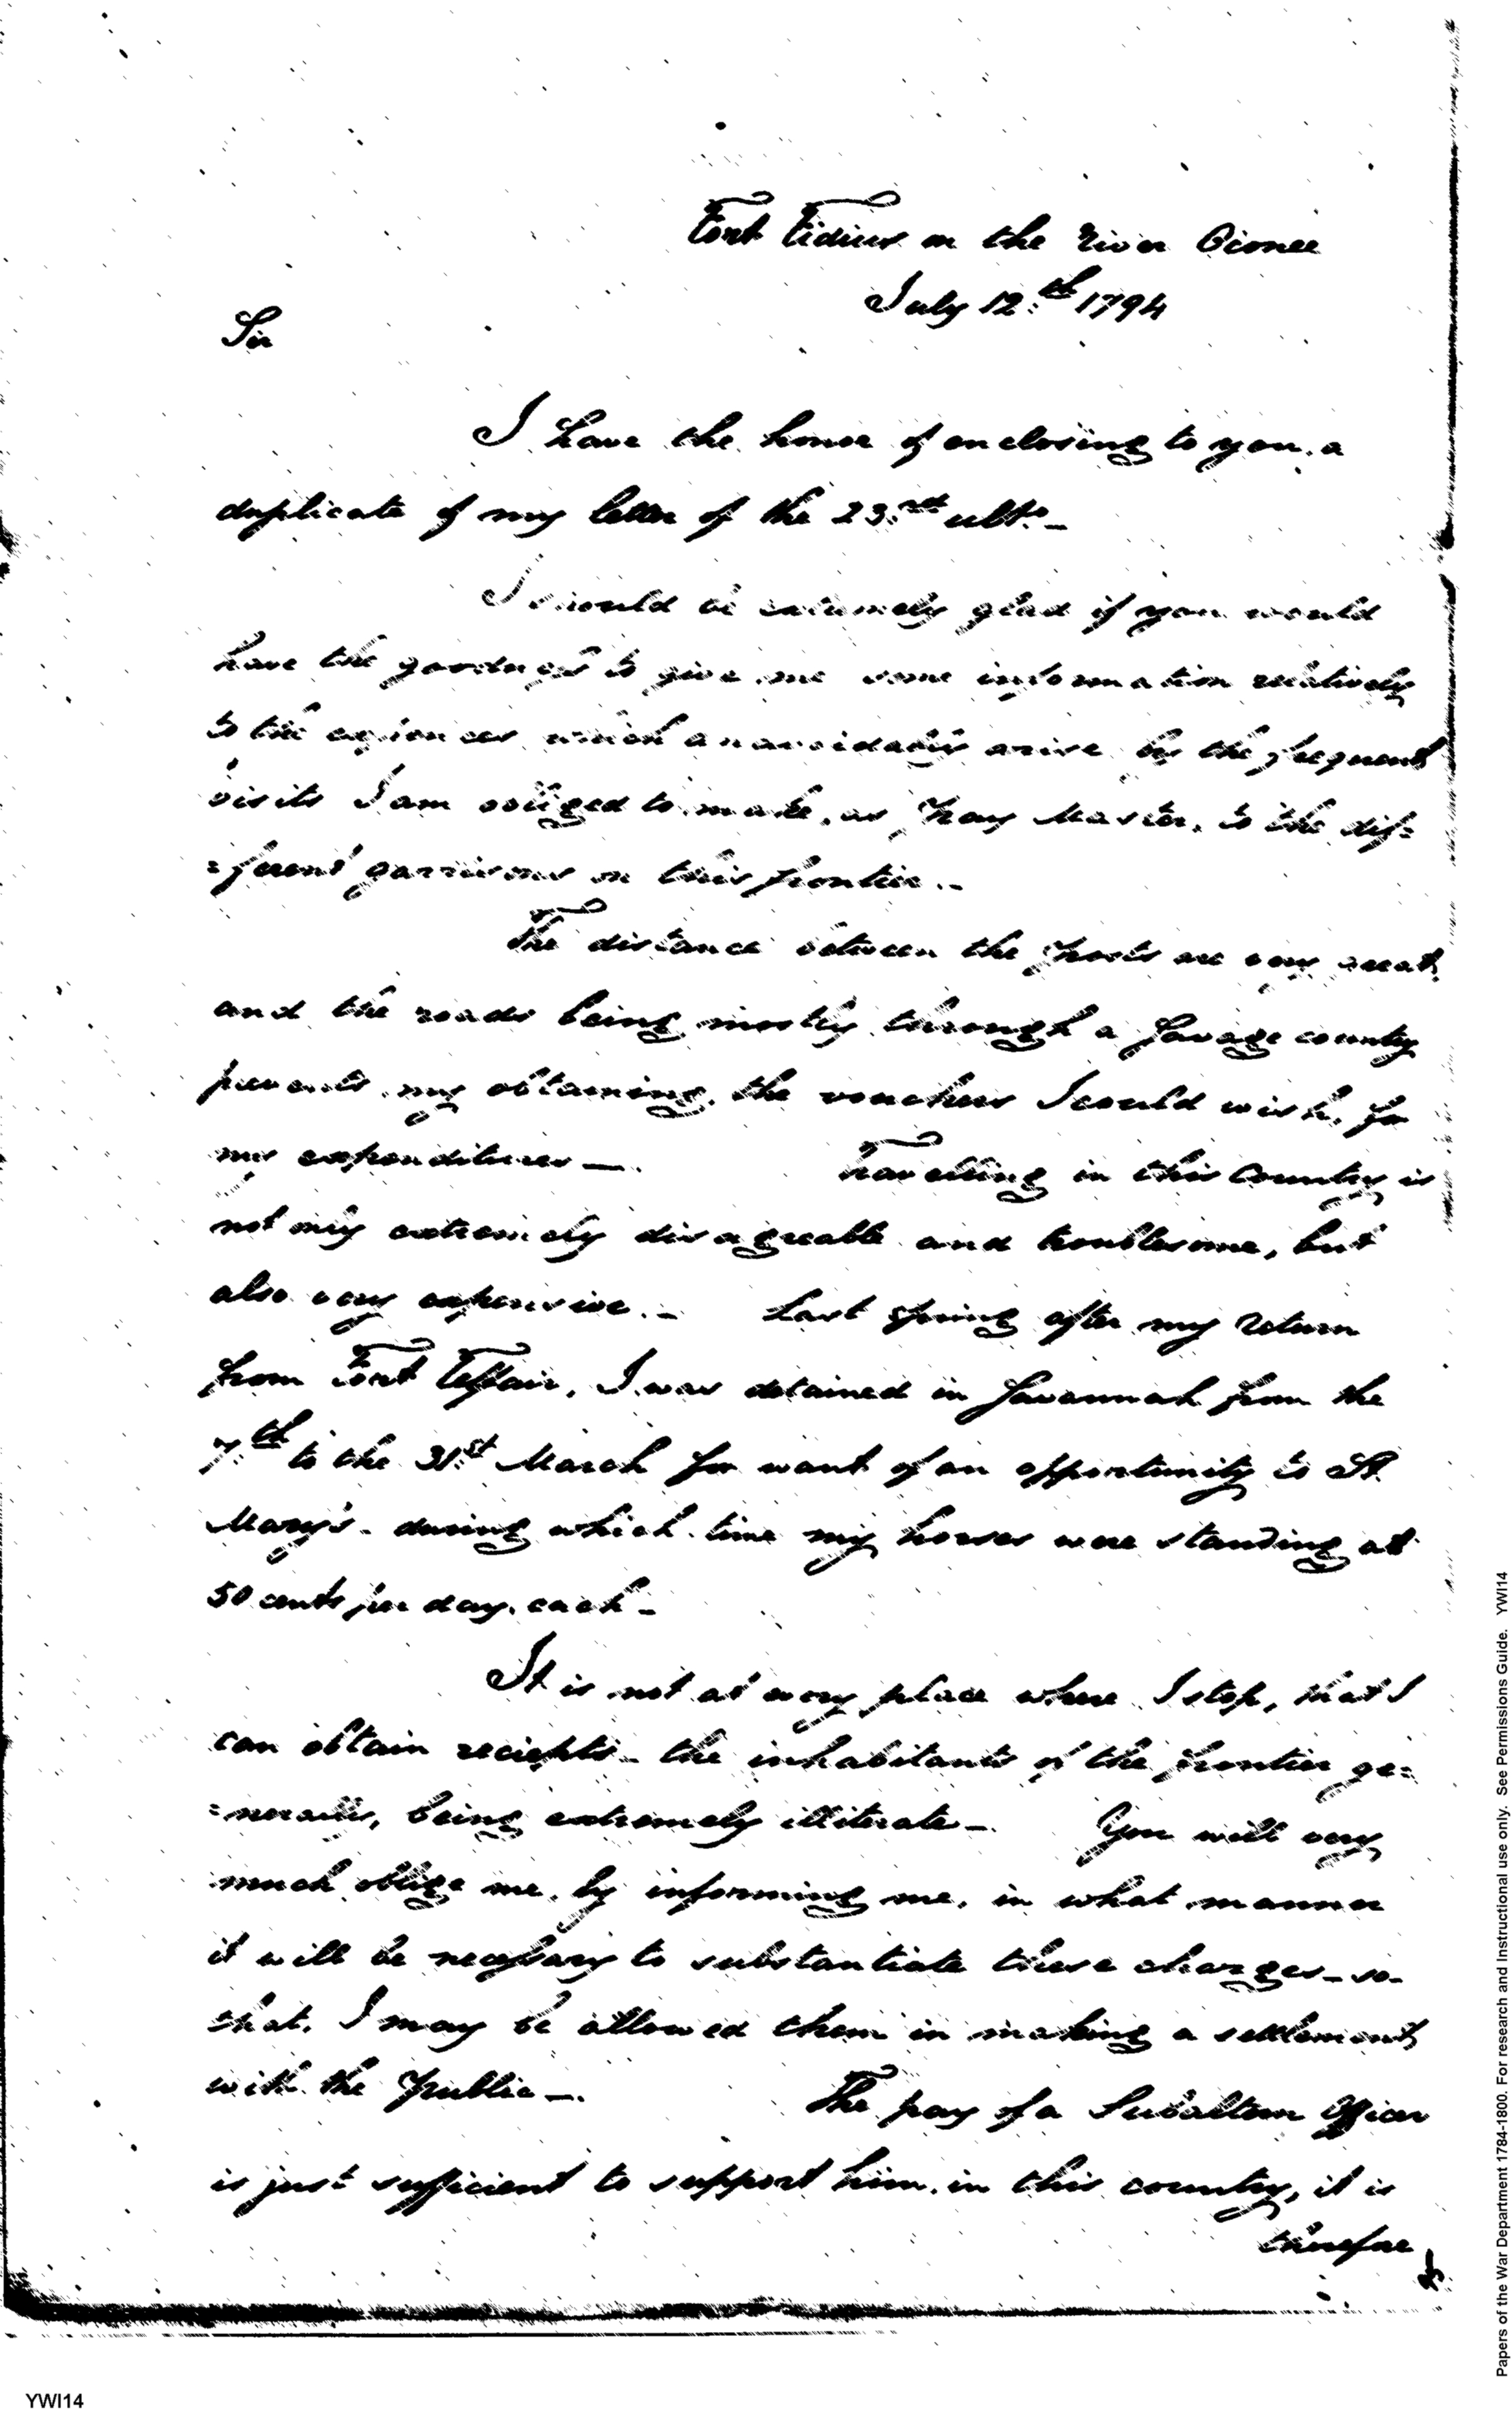 Fort Fidius on the River Oconee
July 12:th 1794
Sir
I have the honor of enclosing to you, a
duplicate of my letter of the 23:rd ulto_
I should be extremely glad if you would
have the goodness to give me some information relatively
to the expences which unavoidably arise by the frequent
visits I am obliged to make, as Pay Master, to the dif=
=ferent garrisons on this frontier._
The distance between the Posts are very great,
and the roads being mostly through a Savage country
prevents my obtaining, the vouchers I could wish, for
my expenditures_. Travelling in this Country is
not only extremely disagreable and troublesome, but
also very expensive._ Last Spring after my return
from Fort Teffair, I was detained in Savannah from the
7:th to the 31:st March for want of an opportunity to St.
Mary's_ during which time my horses were standing at
50 cents per day, each_
It is not at every place where I stop, that I
can obtain reciepts_ the inhabitants of the frontier ge=
=nerally, being extremely illiterate_ You will very
much oblige me, by informing me, in what manner
it will be necessary to substantiate these charges_ so_
that, I may be allowed them in making a settlement
with the Public_. The pay of a Subaltern Officer
is just sufficient to support him, in this country, it is
therefore
Papers of the War Department 1784-1800. For research and Instructional use only. See Permissions Guide. YWI14
YWI14